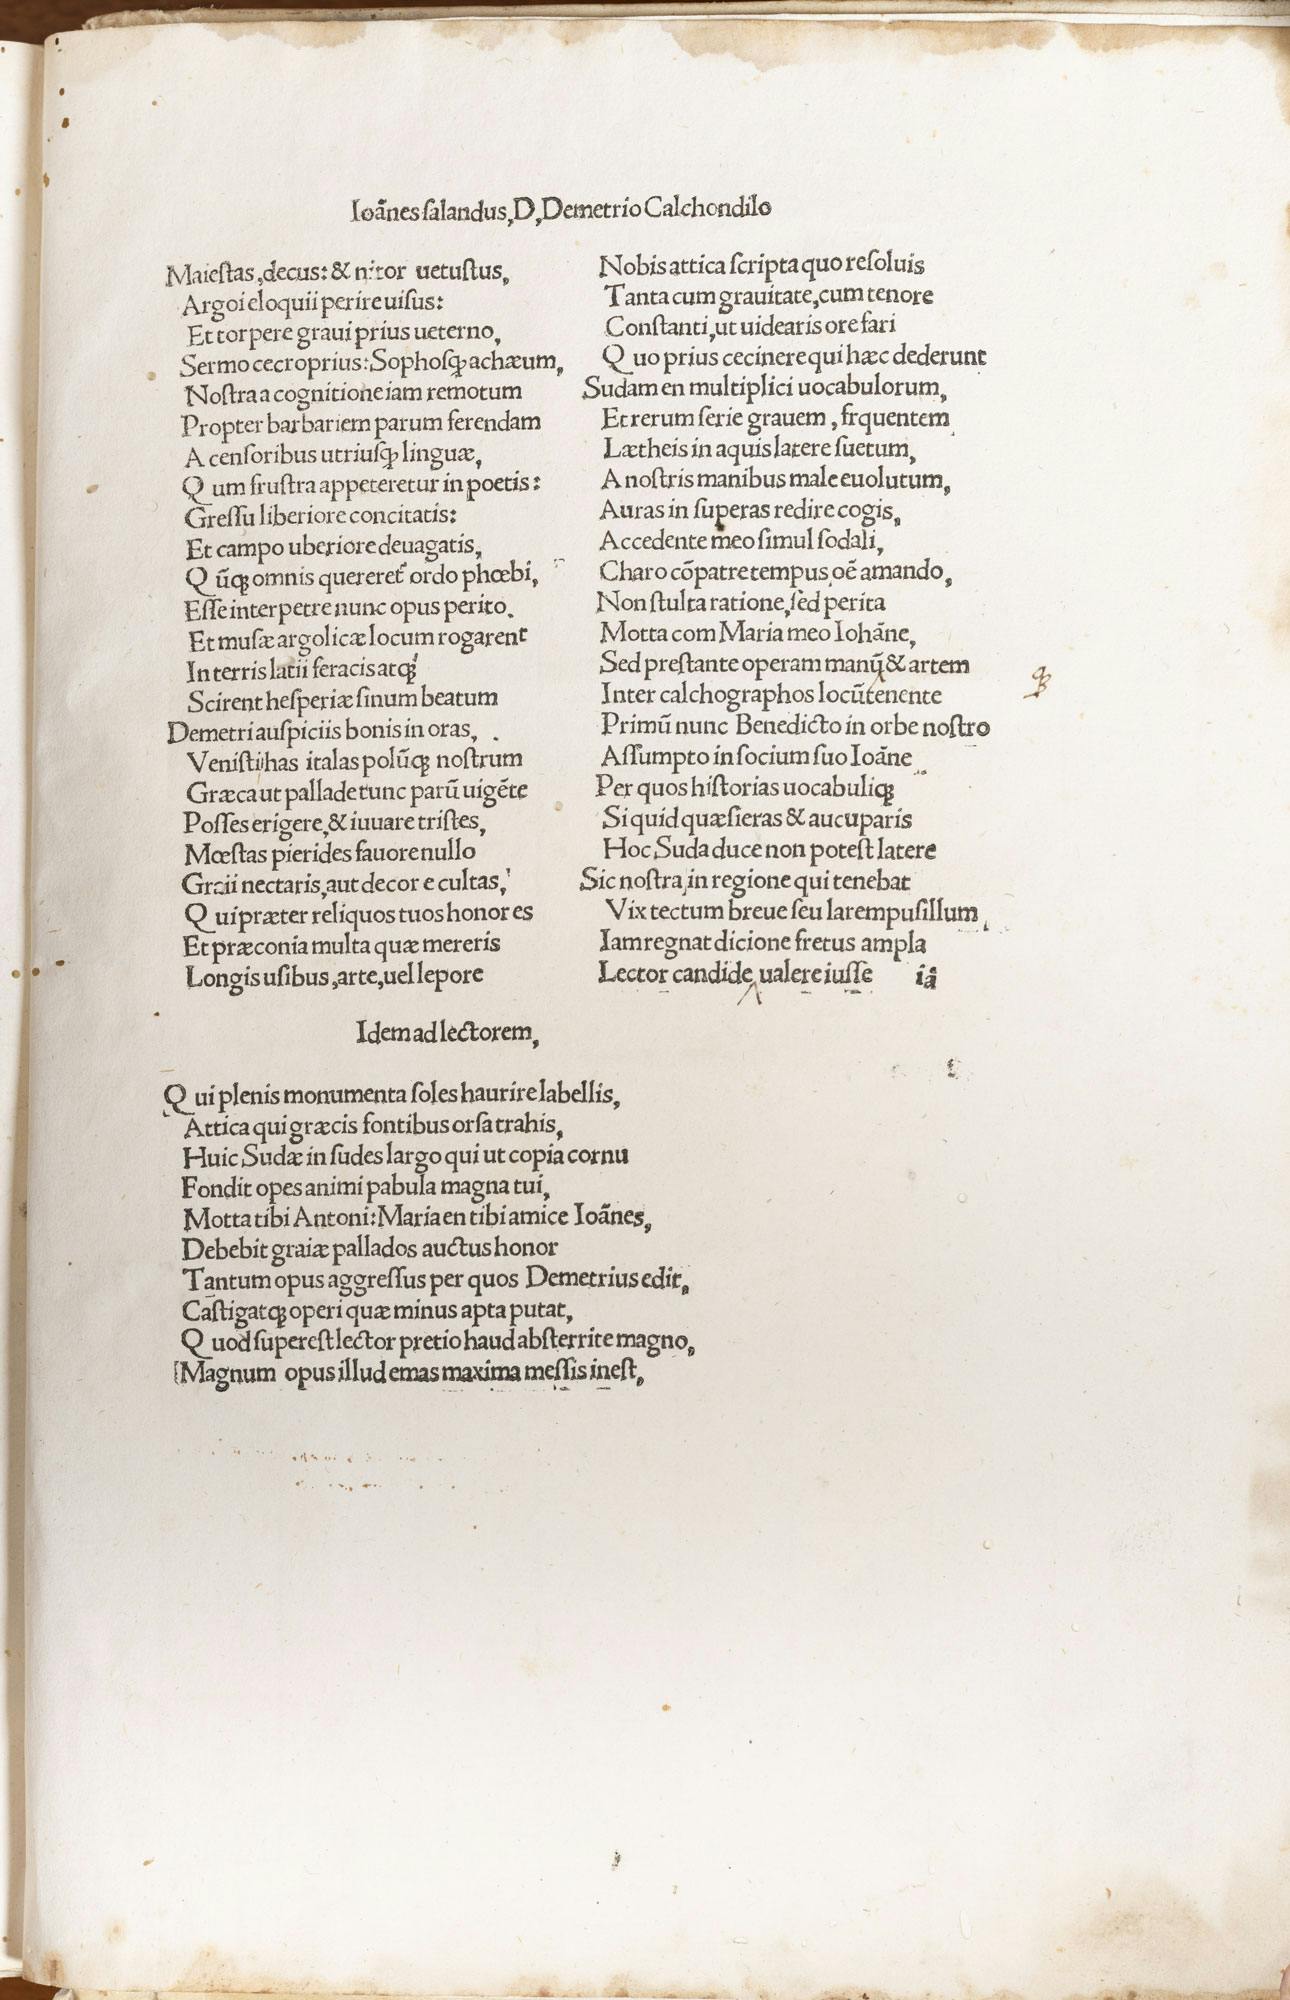 Ioãnes ſalandus, D, Demetrio Calchondilo
Maieſtas, decus: & nitor uetuſtus,
Argoi eloquii perire uiſus:
Et torpere graui prius ueterno,
Sermo cecropius: Sophoſqꝫ achæum,
Noſtra a cognitione iam remotum
Propter barbariem parum ferendam
A cenſoribus utriuſqꝫ linguæ,
Q um fruſtra appeteretur in poetis:
Greſſu liberiore concitatis:
Et campo uberiore deuagatis,
Q ũqꝫ omnis quereret᷑ ordo phœbi,
Eſſe interpetre nunc opus perito.
Et muſæ argolicæ locum rogarent
In terris latii feracis atqꝫ
Scirent heſperiæ ſinum beatum
Demetri auſpiciis bonis in oras,
Veniſti has italas polũqꝫ noſtrum
Græca ut pallade tunc parũ uigẽte
Poſſes erigere, & iuuare triſtes,
Mœſtas pierides fauore nullo
Graii nectaris, aut decore cultas,
Q ui præter reliquos tuos honores
Et præconia multa quæ mereris
Longis uſibus, arte, uel lepore
Nobis attica ſcripta quo reſoluis
Tanta cum grauitate, cum tenore
Conſtanti, ut uidearis ore fari
Q uo prius cecinere qui hæc dederunt
Sudam en multiplici uocabulorum,
Et rerum ſerie grauem, frquentem
Lætheis in aquis latere ſuetum,
A noſtris manibus male euolutum,
Auras in ſuperas redire cogis,
Accedente meo ſimul ſodali,
Charo cõpatre tempus oẽ amando,
Non ſtulta ratione, ſed perita
Motta com Maria meo Iohãne,
Sed preſtante operam manũ & artem
qꝫ
Inter calchographos locũ tenente
Primũ nunc Benedicto in orbe noſtro
Aſſumpto in ſocium ſuo Ioãne
Per quos hiſtorias uocabuliqꝫ
Si quid quæſieras & aucuparis
Hoc Suda duce non poteſt latere
Sic noſtra in regione qui tenebat
Vix tectum breue ſeu larem puſillum,
Iam regnat dicione fretus ampla
Lector candide, ualere iuſſe iã
Idem ad lectorem,
Q ui plenis monumenta ſoles haurire labellis,
Attica qui græcis fontibus orſa trahis,
Huic Sudæ in ſudes largo qui ut copia cornu
Fondit opes animi pabula magna tui,
Motta tibi Antoni: Maria en tibi amice Ioãnes,
Debebit graiæ pallados auctus honor
Tantum opus aggreſſus per quos Demetrius edit,
Caſtigatqꝫ operi quæ minus apta putat,
Q uod ſupereſt lector pretio haud abſterrite magno,
Magnum opus illud emas maxima meſſis ineſt,